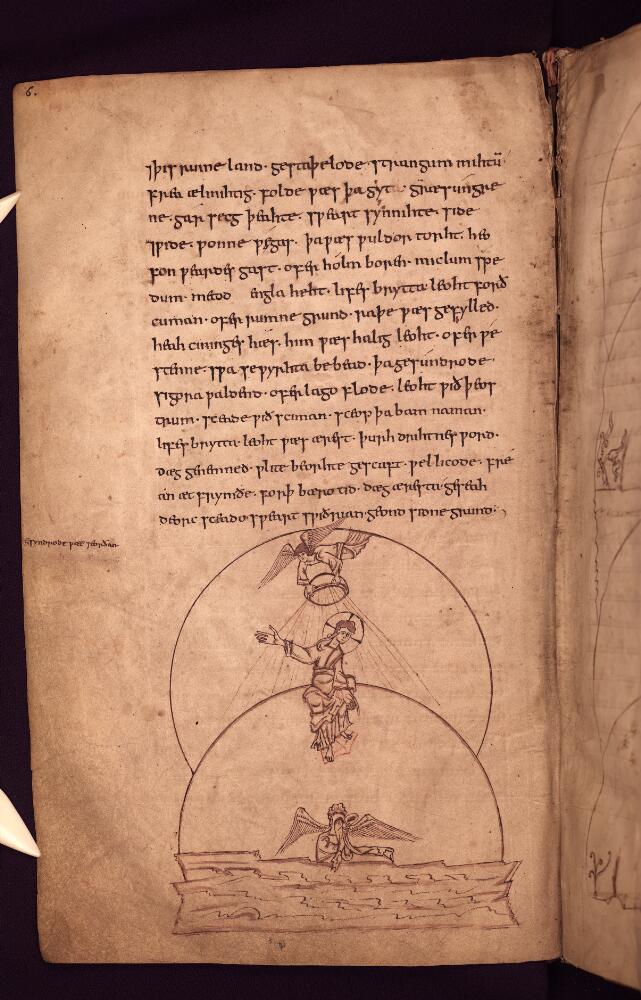 6.
⁊þis rume land· gestaþelode· strangum mihtū
frea ælmihtig· folde ƿæs þa gyt· græs ungre
ne· gar secg þeahte· sƿeart synnihte· side
⁊ƿide· ƿonne ƿægas· þa ƿæs ƿuldor torht· heo
fon ƿeardes gast· ofer holm boren· miclum spe
dum· metod engla heht· lifes brytta leoht forð
cuman· ofer rumne grund· raþe ƿæs gefylled·
heah cininges hæs· him ƿæs halig leoht· ofer ƿe
stenne· sƿa se ƿyrhta bebead· þa gesundrode·
sigora ƿaldend· ofer lago flode· leoht ƿið þeos
trum· sceade ƿið sciman· sceop þa bam naman·
lifes brytta· leoht ƿæs ærest· þurh drihtnes ƿord·
dæg genemned· ƿlite beorhte gesceaft· ƿel licode· fre
an æt frymðe· forþ bæro tid· dæg æresta· geseah
deorc sceado sƿeart sƿiðrian· geond sidne grund:,